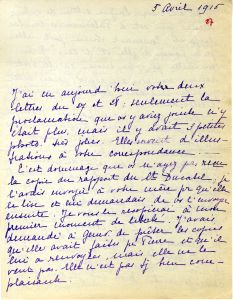 5 Avril 1915
27
J'ai eu aujourd'hui votre deux
lettres du 27 et 28; seulement la
proclamation que vs y aviez jointe n'y
était plus, mais il y avait 3 petites
photos très jolies. Elles servent d'illus-
trations à votre correspondance.
C'est dommage que vs n'ayez pas reçu
la copie du rapport du Lt Ducatel; je
l'avais envoyé à votre mère pr qu'elle
le lise et lui demandais de vs l'envoyer
ensuite. Je vous le recopierai à mon
premier moment de liberté. J'avais
demandé à de prêter les copies
qu'elle avait faites pr Pierre et qu'il
lui a renvoyées, mais elle ne le
veut pas. Elle n'est pas bien com-
plaisante.